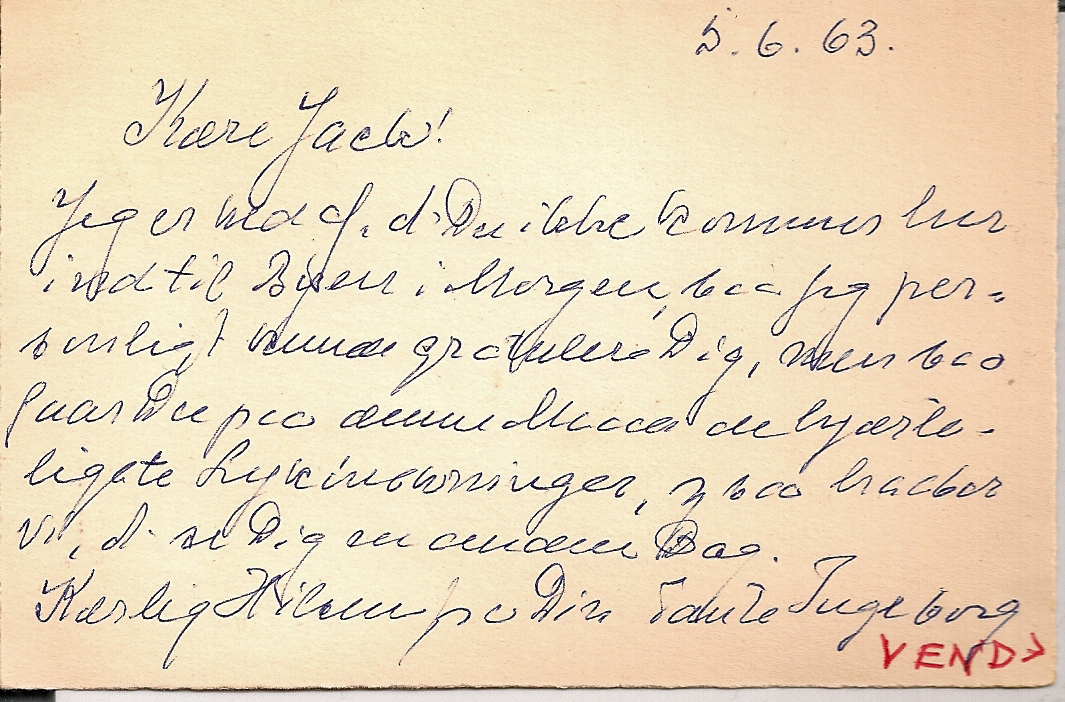 5.6.63.
Kære Jack!
Jeg er ked af, at Du ikke kommer her
ind til Byen i Morgen, saa jeg per-
sonligt kunde gratulere Dig, men saa
faar Du paa denne Maade de hjerte-
ligste Lykønskninger, og saa haaber
vi, at se Dig en anden Dag.
Kærlig Hilsen fra Din Tante Ingeborg
VEND>